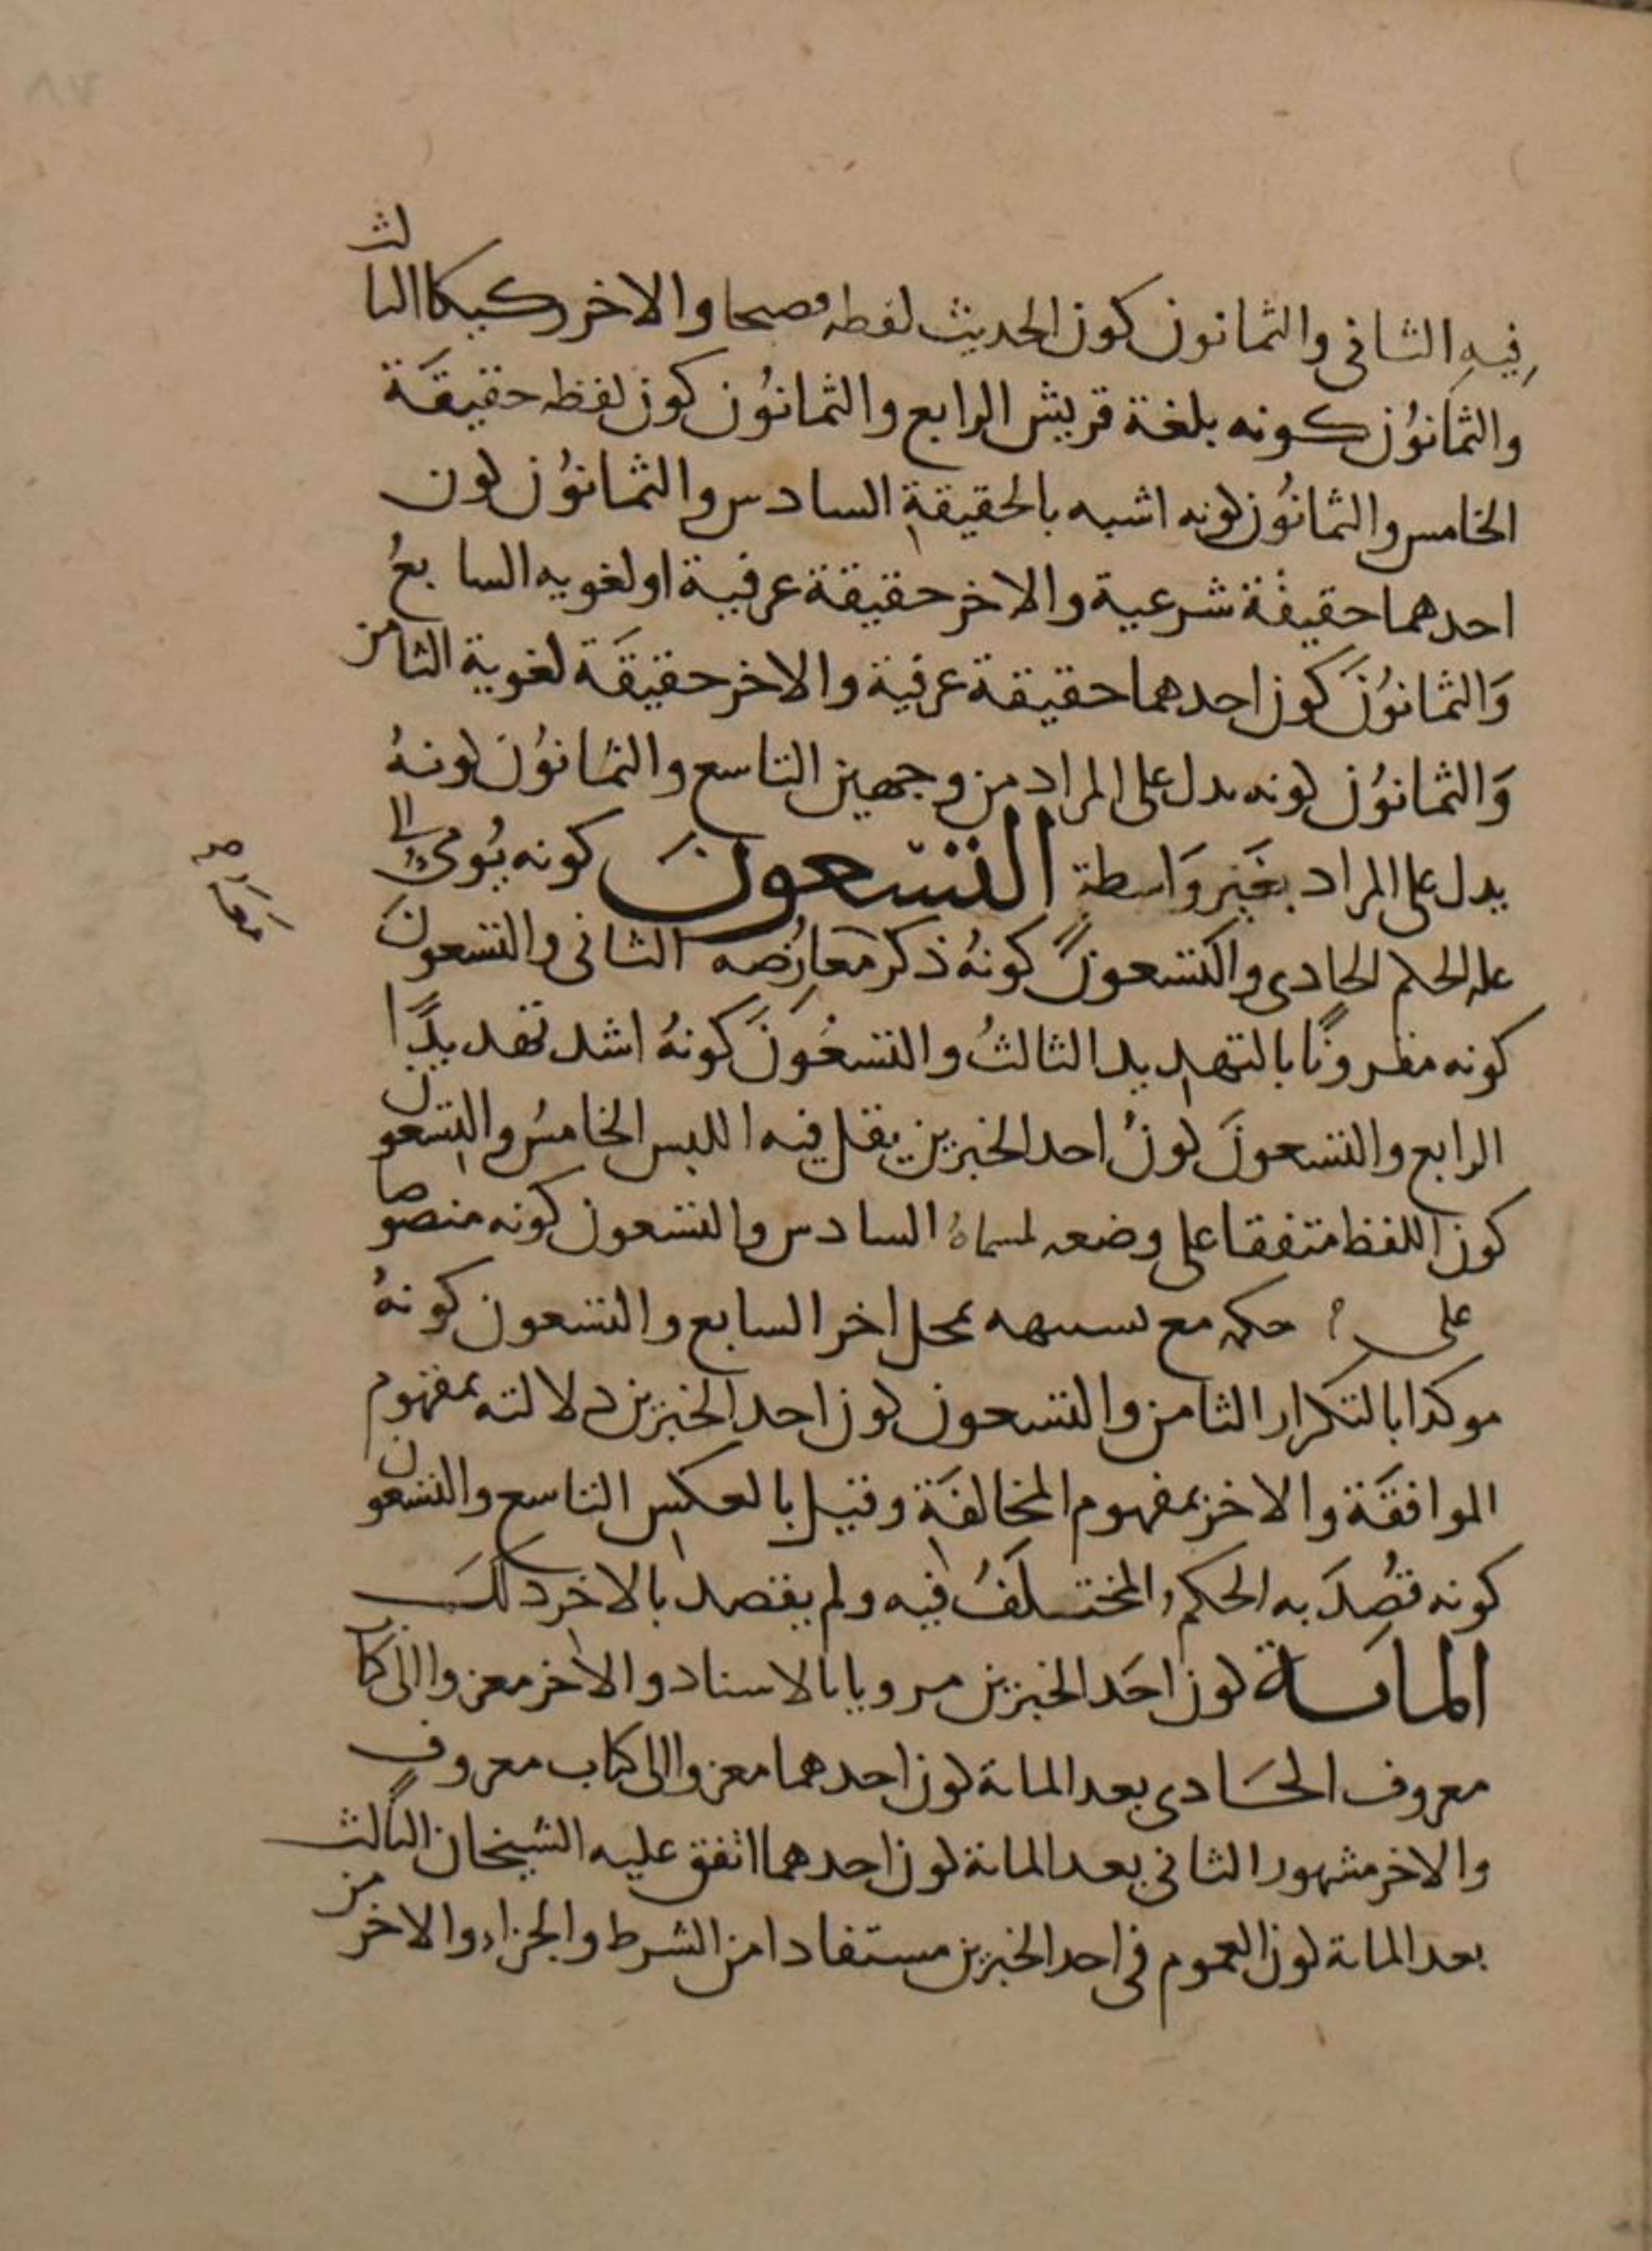 فيه الثاني والثمانون كون الحديث لفظه فصيحا والاخر ركيكا الثالث
والثمانون كونه بلغة قريش الرابع والثمانون كون لفظه حقيقة
الخامس والثمانون كونه اشبه بالحقيقة السادس والثمانون كون
احدهما حقيقة شرعية والاخر حقيقة عرفية او لغويه السابع
والثمانون كون احدهما حقيقة عرفية والاخر حقيقة لغوية الثامن
والثمانون كونه يدل على المراد من وجهين التاسع والثمانون كونه
يدل على المراد بغير واسطة التسعون كونه يومئ الى
علة الحكم الحادي والتسعون كونه ذكر معارضه الثاني والتسعون
كونه مقرونا بالتهديد الثالث والتسعون كونه اشد تهديدا
الرابع والتسعون كون احد الخبرين يقل فيه اللبس الخامس والتسعون
كون اللفظ متفقا على وضعه لمسماه السادس والتسعون كونه منصوصا
على حكمه مع تشبيهه بمحل اخر السابع والتسعون كونه
موكدا بالتكرار الثامن والتسعون كون احد الخبرين دلالته بمفهوم
الموافقة والاخر بمفهوم المخالفة وقيل بالعكس التاسع والتسعون
كونه قصد به الحكم المختلف فيه ولم يقصد بالاخر ذلك
الماية كون احد الخبرين مرويا بالاسناد والاخر معزوا الى كتاب
معروف الحادي بعد الماية كون احدهما معزوا الى كتاب معروف
والاخر مشهور الثاني بعد الماية كون احدهما اتفق عليه الشيخان الثالث
بعد الماية كون العموم في احد الخبرين مستفادا من الشرط والجزاء والاخر من